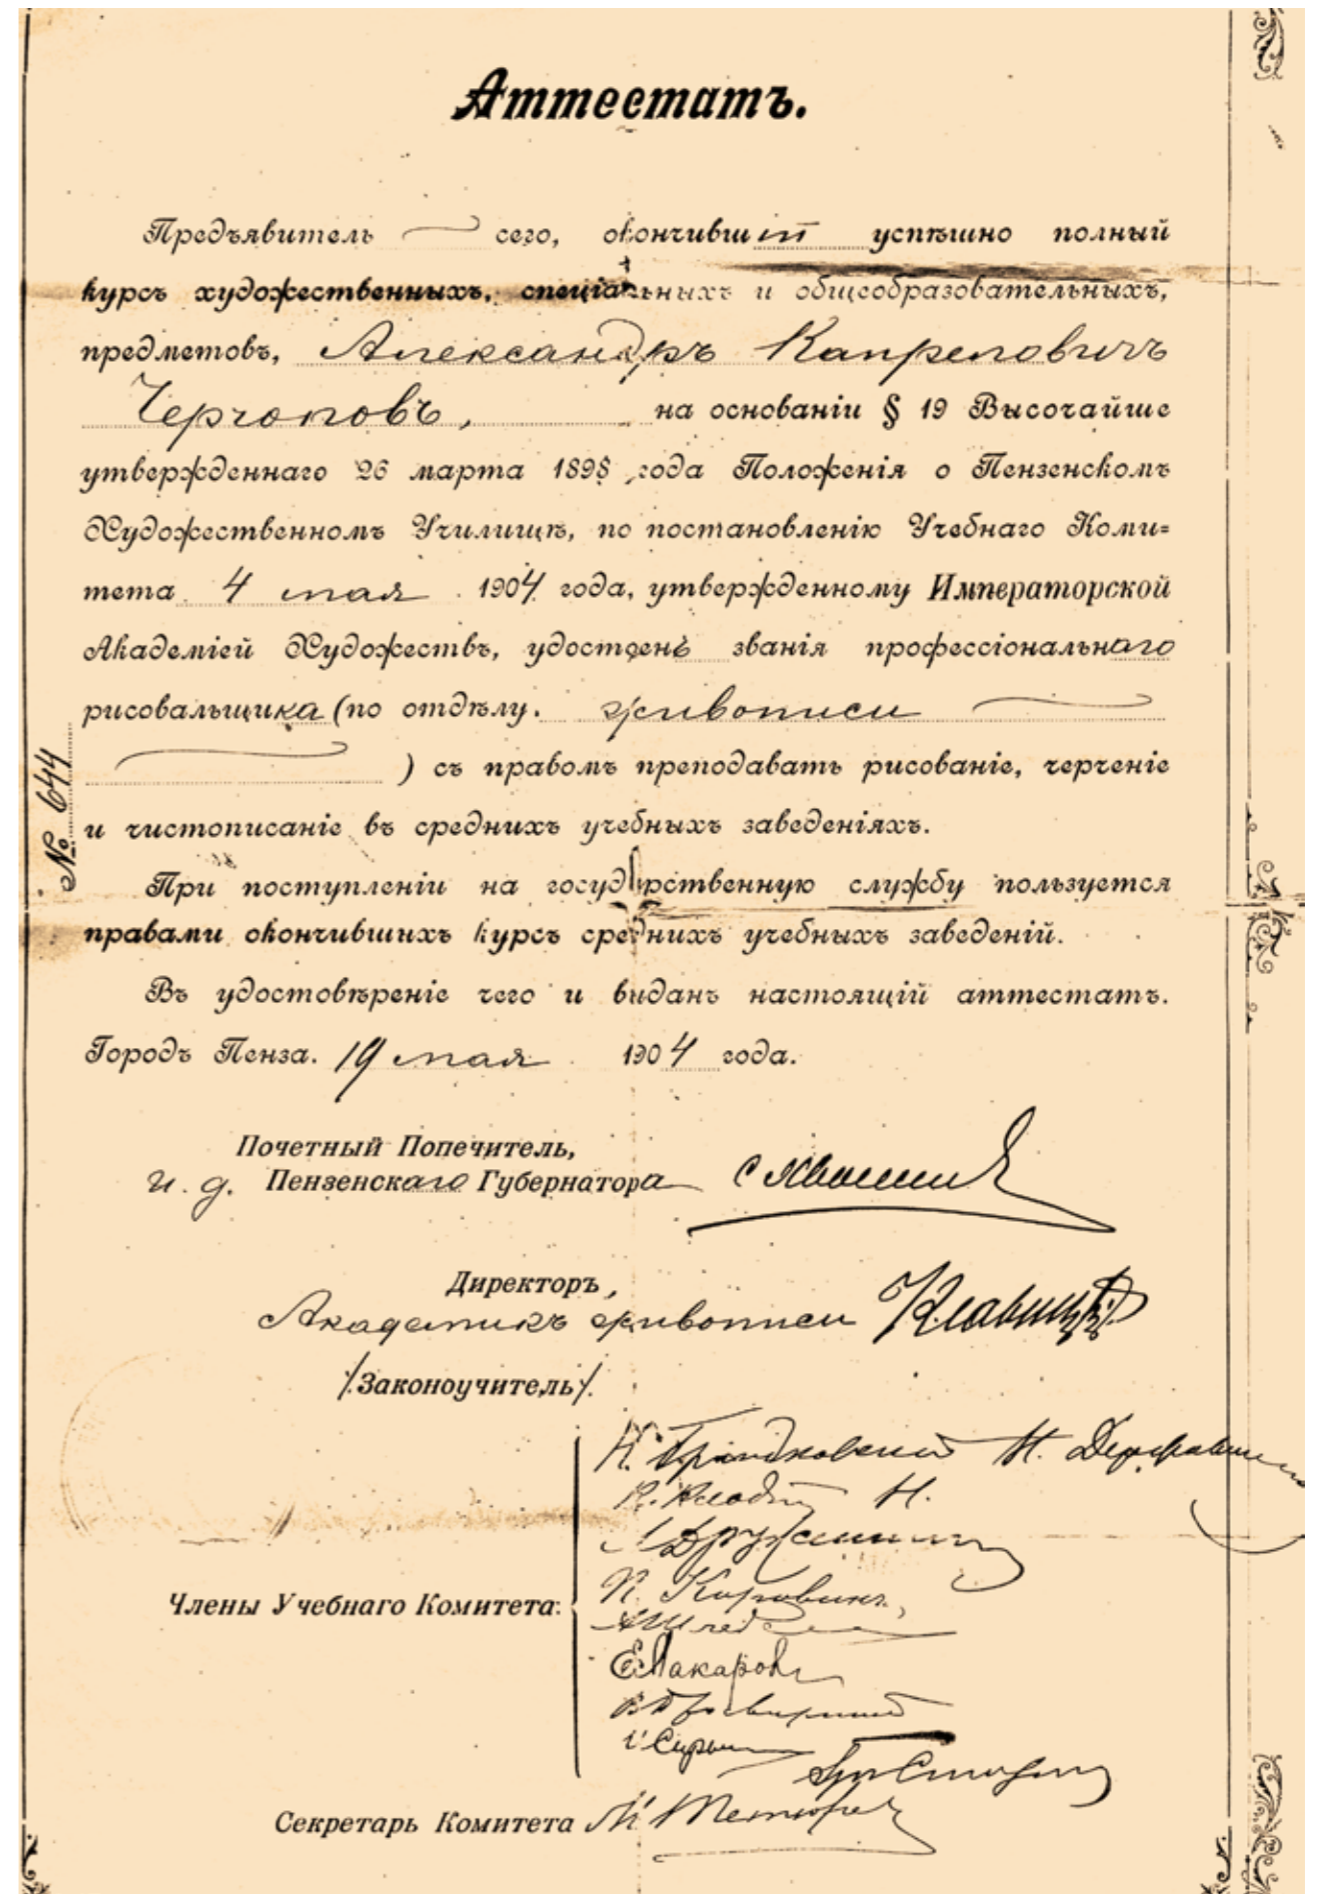 Аттестатъ.
Предъявитель сего, окончившій успѣшно полный
курсъ художественныхъ, спеціальныхъ и общеобразовательныхъ,
предметовъ, Александръ Карповичъ
на основаніи § 19 Высочайше
утвержденнаго 26 марта 1898 года Положенія о Пензенскомъ
Художественномъ Училищѣ, по постановленію Учебнаго Коми=
тета 4 мая 1904 года, утвержденному Императорской
Академіей Художествъ, удостоенъ званія профессіональнаго
рисовальщика (по отдѣлу. живописи
) съ правомъ преподавать рисованіе, черченіе
и чистописаніе въ среднихъ учебныхъ заведеніяхъ.
№ 644
При поступленіи на государственную службу пользуется
правами окончившихъ курсъ среднихъ учебныхъ заведеній.
Въ удостовѣреніе чего и выданъ настоящій аттестатъ.
Городъ Пенза. 19 мая 1904 года.
Почетный Попечитель,
и. д. Пензенскаго Губернатора
Директоръ,
Академикъ живописи К. Савицкій
/Законоучитель/.
Члены Учебнаго Комитета:
П. Коровинъ
Е. Макаровъ
Секретарь Комитета